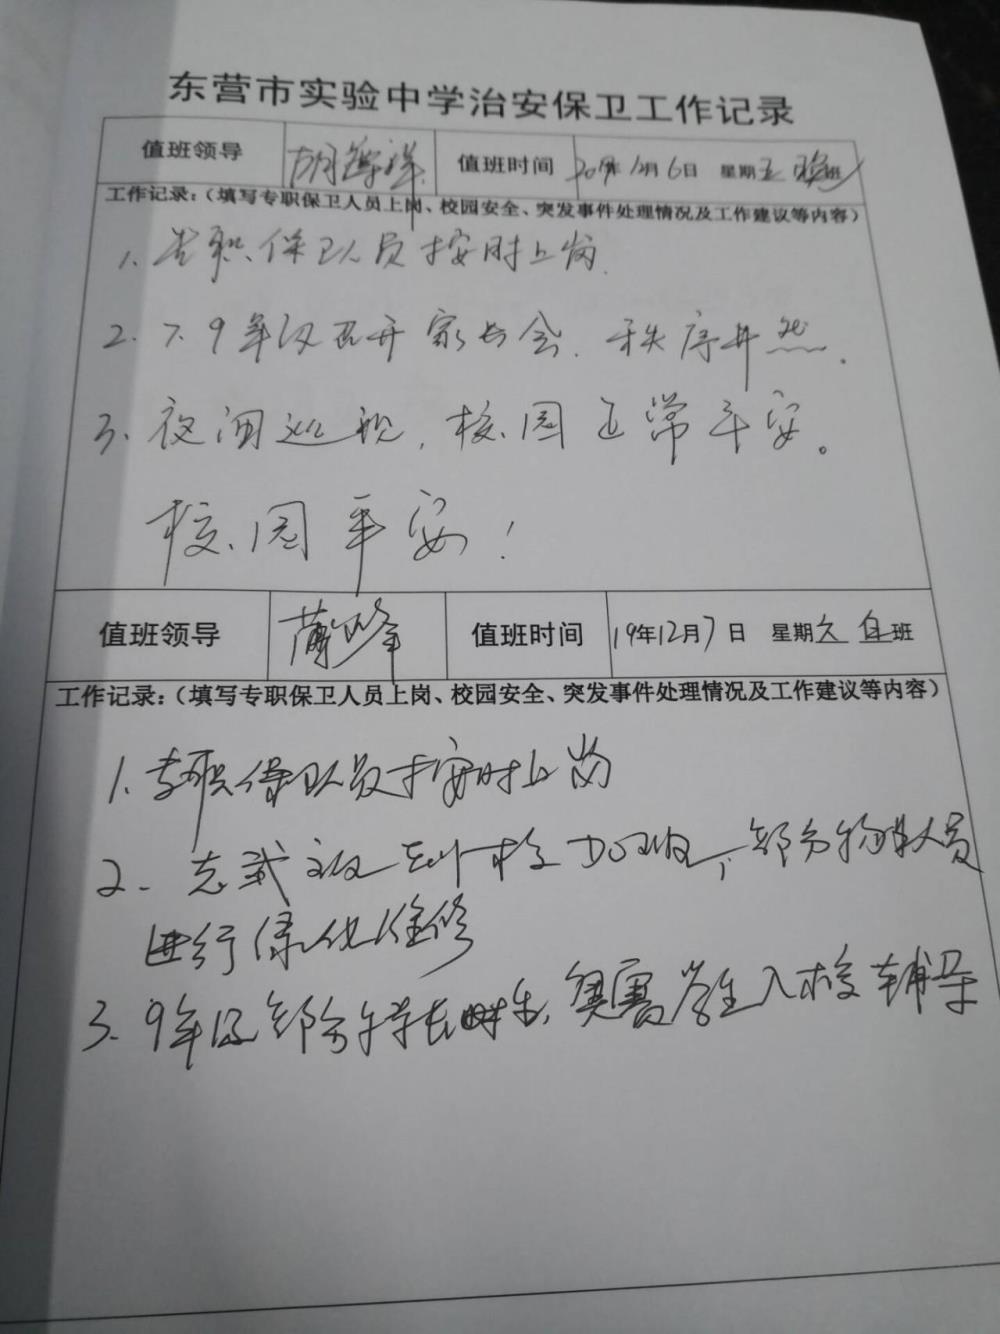 东营市实验中学治安保卫工作记录
值班领导 胡 祥 值班时间 2019年12月6日 星期五 晚班
工作记录:（填写专职保卫人员上岗、校园安全、突发事件处理情况及工作建议等内容）
1、专职保卫人员按时上岗.
2、7.9年级召开家长会.秩序井然.
3、夜间巡视,校园正常平安。
校园平安!
值班领导 峰 值班时间 19年12月7日 星期六 白班
工作记录:（填写专职保卫人员上岗、校园安全、突发事件处理情况及工作建议等内容）
1.专职保卫人员按时上岗
2、 到校加班,部分物业人员
进行绿化维修
3、9年级部分特长生,奥赛学生入校辅导